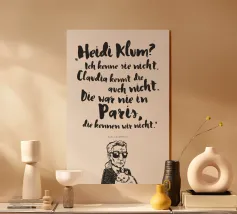 „Heidi Klum?
Ich kenne sie nicht.
Claudia kennt die
auch nicht.
Die war nie in
Paris,
die kennen wir nicht.“